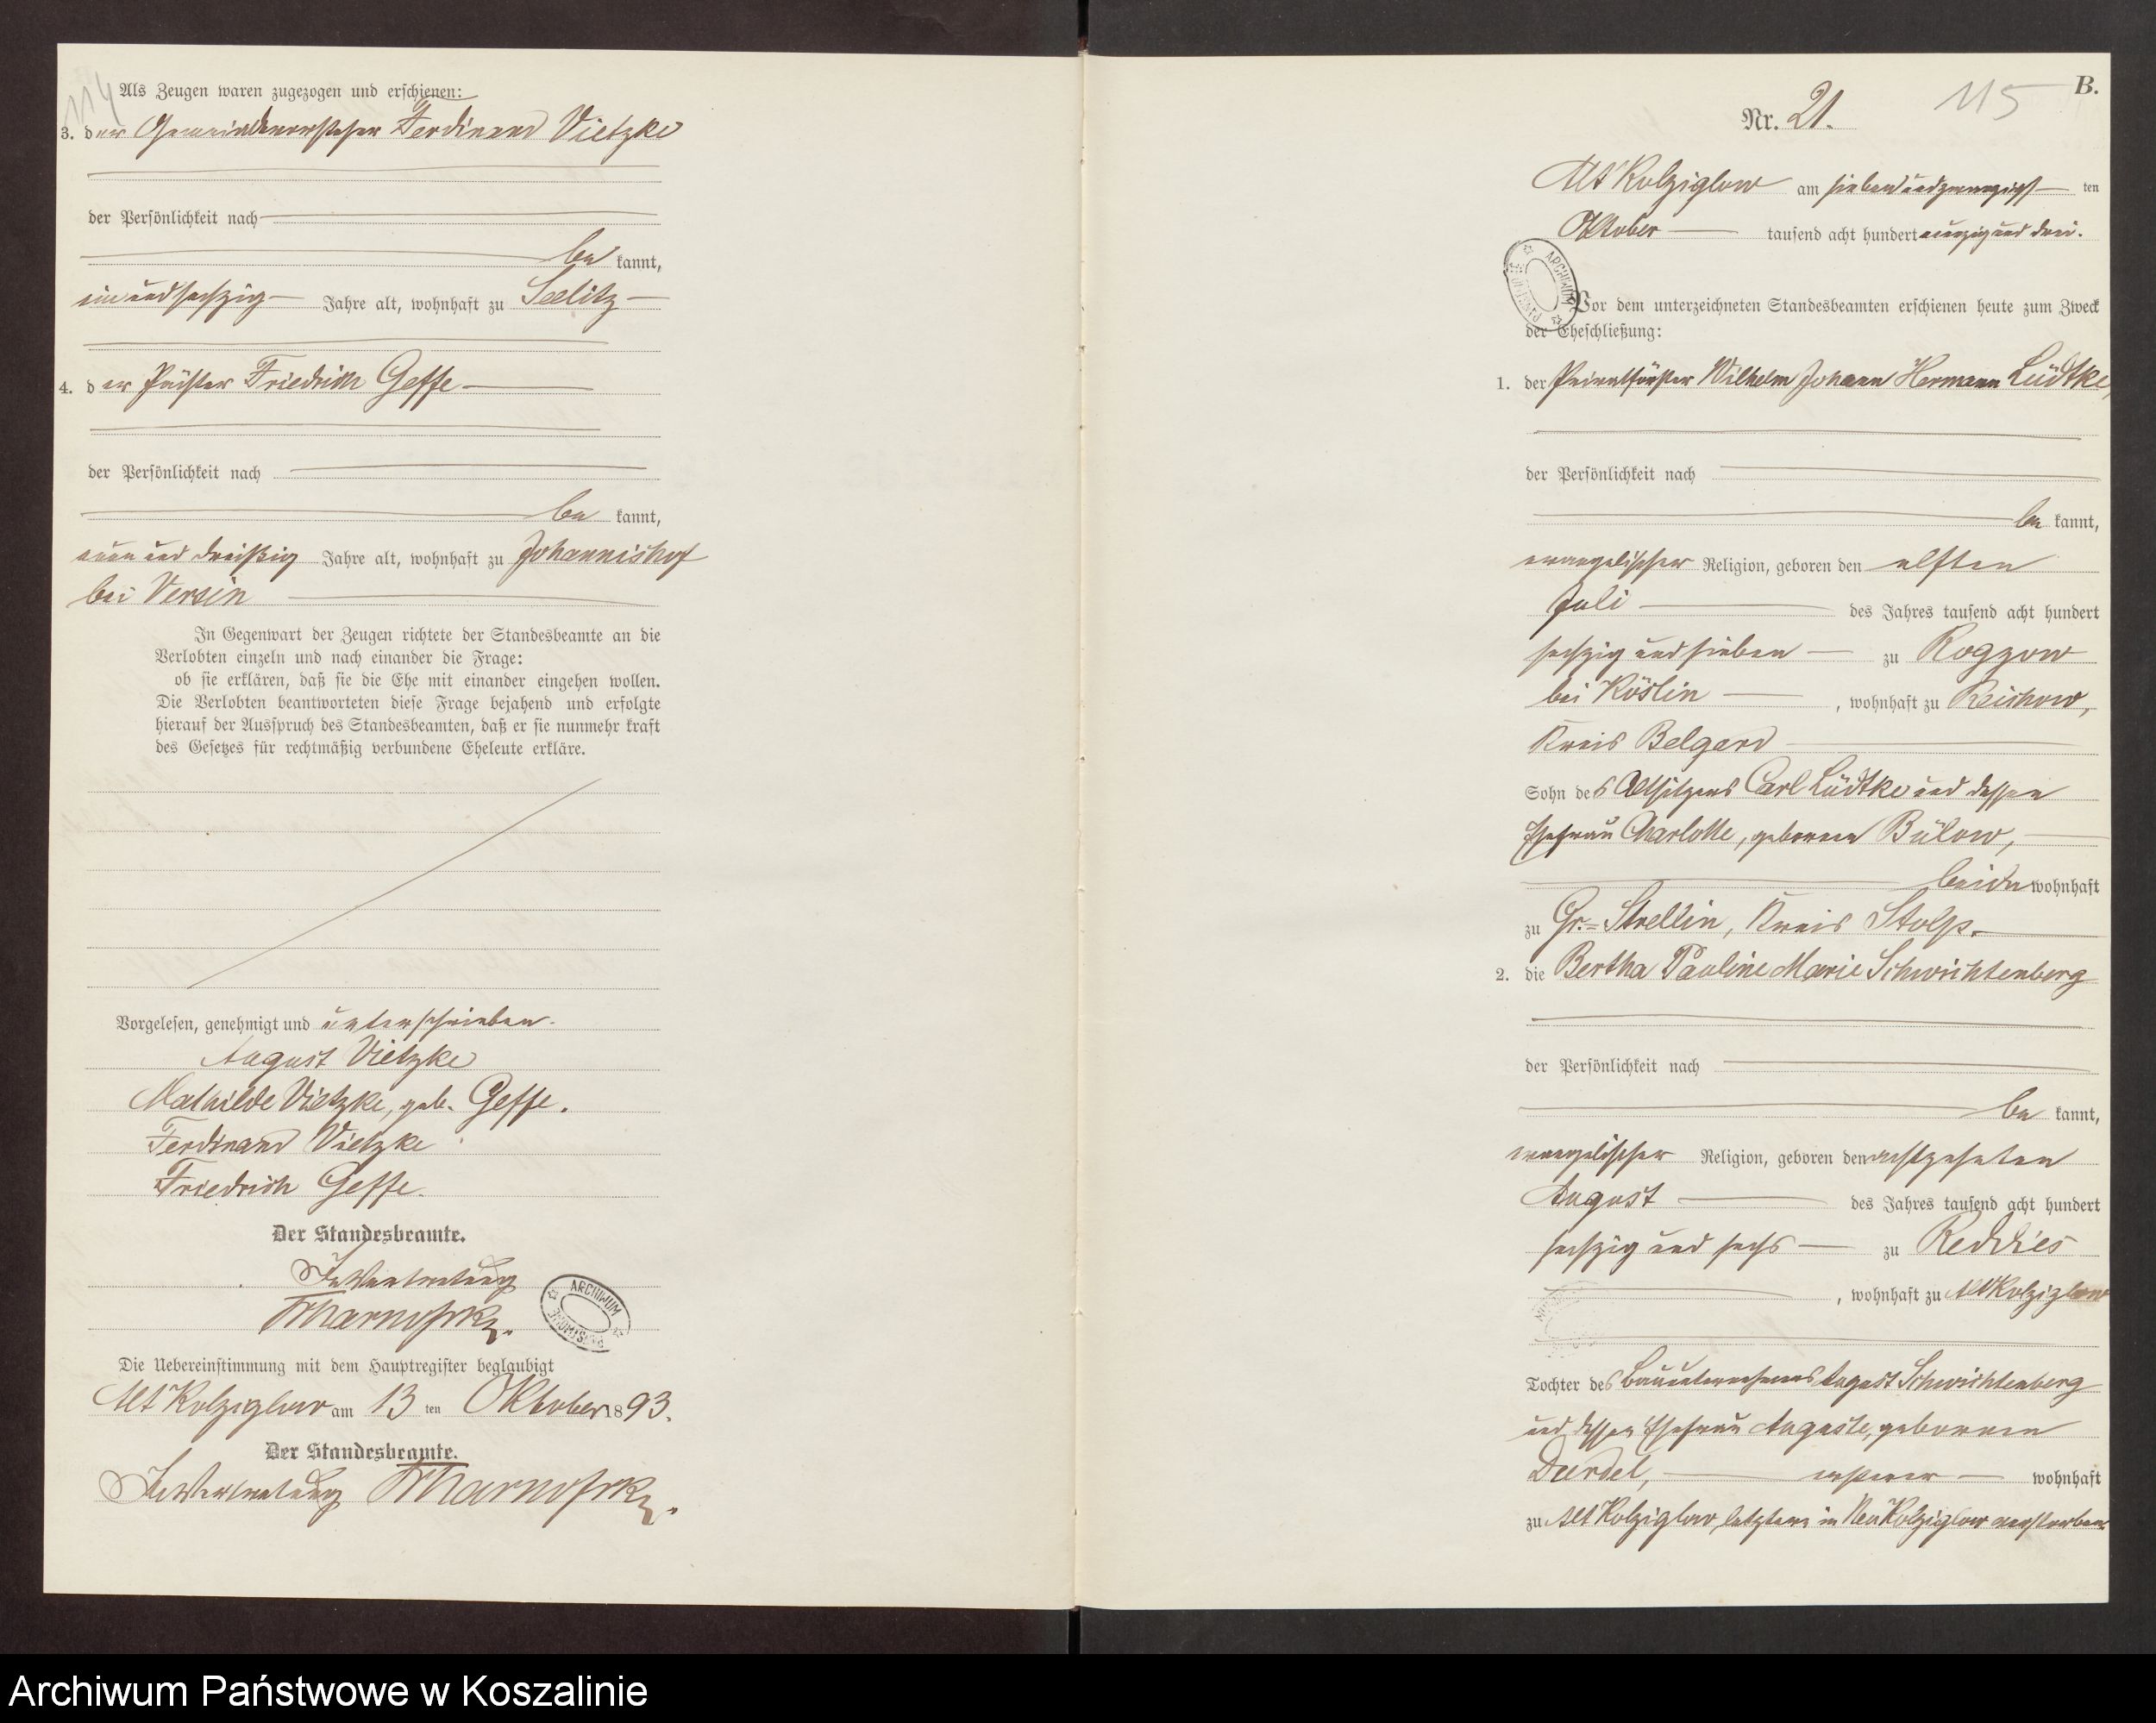 114
Als Zeugen waren zugezogen und erschienen:
3. der Gemeindevorsteher Ferdinand Vietzke
der Persönlichkeit nach
be kannt,
ein und sechzig Jahre alt, wohnhaft zu Seelitz
4. der Friedrich Geffe
der Persönlichkeit nach
be kannt,
neun und dreißig Jahre alt, wohnhaft zu Johannishof
bei Versin
In Gegenwart der Zeugen richtete der Standesbeamte an die
Verlobten einzeln und nach einander die Frage:
ob sie erklären, daß sie die Ehe mit einander eingehen wollen.
Die Verlobten beantworteten diese Frage bejahend und erfolgte
hierauf der Ausspruch des Standesbeamten, daß er sie nunmehr kraft
des Gesetzes für rechtmäßig verbundene Eheleute erkläre.
Vorgelesen, genehmigt und unterschrieben.
August Vietzke
Mathilde Vietzke, geb. Geffe.
Ferdinand Vietzke
Friedrich Geffe.
Der Standesbeamte.
In Vertretung
ARCHIWUM PAŃSTWOWE
Die Uebereinstimmung mit dem Hauptregister beglaubigt
Alt Kolziglow am 13 ten Oktober 1893.
Der Standesbeamte.
In Vertretung
B.
115
Nr. 21.
Alt Kolziglow am sieben und zwanzigst ten
Oktober tausend acht hundert neunzig und drei.
ARCHIWUM PAŃSTWOWE
Vor dem unterzeichneten Standesbeamten erschienen heute zum Zweck
der Eheschließung:
1. der Privatförster Wilhelm Johann Hermann Lüdtke,
der Persönlichkeit nach
be kannt,
evangelischer Religion, geboren den elften
Juli des Jahres tausend acht hundert
sechzig und sieben zu Rogzow
bei Köslin, wohnhaft zu Reichow,
Kreis Belgard
Sohn des Altsitzers Carl Lüdtke und dessen
Ehefrau Charlotte, geborenen Bülow,
beide wohnhaft
zu Gr.= Strellin, Kreis Stolp.
2. die Bertha Pauline Marie Schwichtenberg
der Persönlichkeit nach
be kannt,
evangelischer Religion, geboren den achtzehnten
August des Jahres tausend acht hundert
sechzig und sechs zu Reddies
, wohnhaft zu Alt Kolziglow
Tochter des Bauunternehmers August Schwichtenberg
und dessen Ehefrau Auguste, geborenen
ersterer wohnhaft
zu Alt Kolziglow, letztere in Neu Kolziglow verstorben.
Archiwum Państwowe w Koszalinie